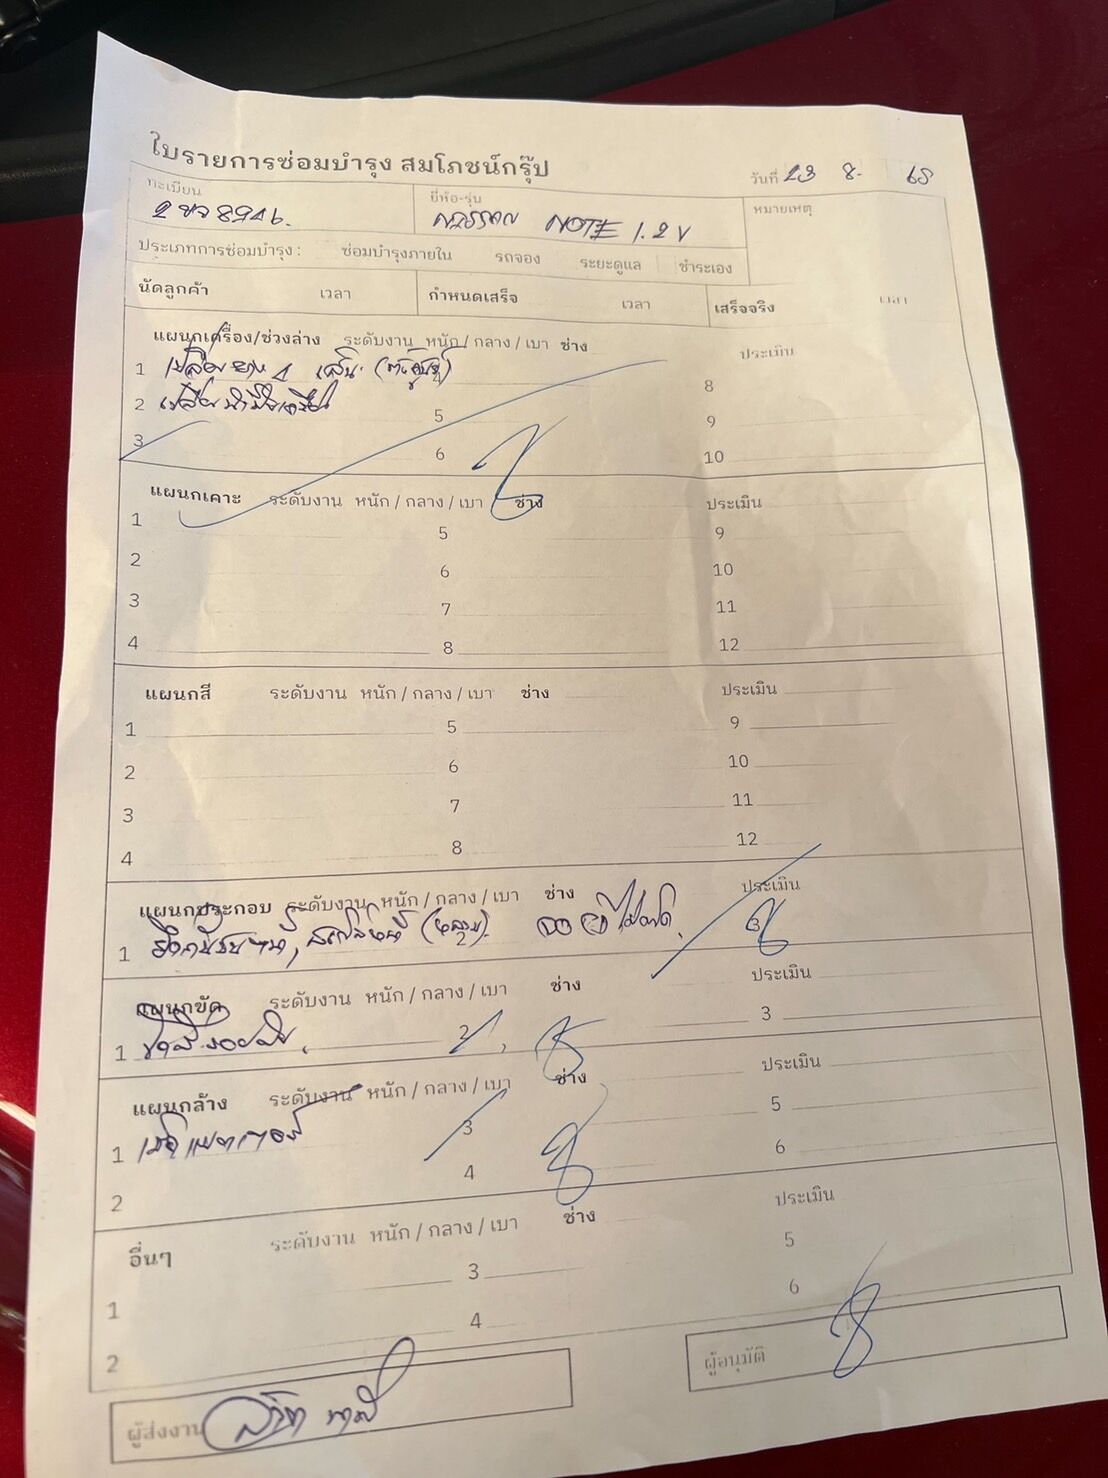 ใบรายการซ่อมบำรุง สมโภชน์กรุ๊ป
วันที่ 23 8. 65
ทะเบียน ยี่ห้อ-รุ่น หมายเหตุ
2 ขจ 8946. NOTE 1.2 V
ประเภทการซ่อมบำรุง : ซ่อมบำรุงภายใน รถจอง ระยะดูแล ชำระเอง
นัดลูกค้า เวลา กำหนดเสร็จ เวลา เสร็จจริง เวลา
แผนกเครื่อง/ช่วงล่าง ระดับงาน หนัก / กลาง / เบา ช่าง ประเมิน
1 เปลี่ยนยาง 4 เส้น 8
2 เปลี่ยนน้ำมันเครื่อง 5 9
3 6 10
แผนกเคาะ ระดับงาน หนัก / กลาง / เบา ช่าง ประเมิน
1 5 9
2 6 10
3 7 11
4 8 12
แผนกสี ระดับงาน หนัก / กลาง / เบา ช่าง ประเมิน
1 5 9
2 6 10
3 7 11
4 8 12
แผนกประกอบ ระดับงาน หนัก / กลาง / เบา ช่าง ประเมิน
1 2 3
แผนกขัด ระดับงาน หนัก / กลาง / เบา ช่าง ประเมิน
1 2 3
แผนกล้าง ระดับงาน หนัก / กลาง / เบา ช่าง ประเมิน
1 3 5
2 4 6
อื่นๆ ระดับงาน หนัก / กลาง / เบา ช่าง ประเมิน
1 3 5
2 4 6
ผู้ส่งงาน ผู้อนุมัติ